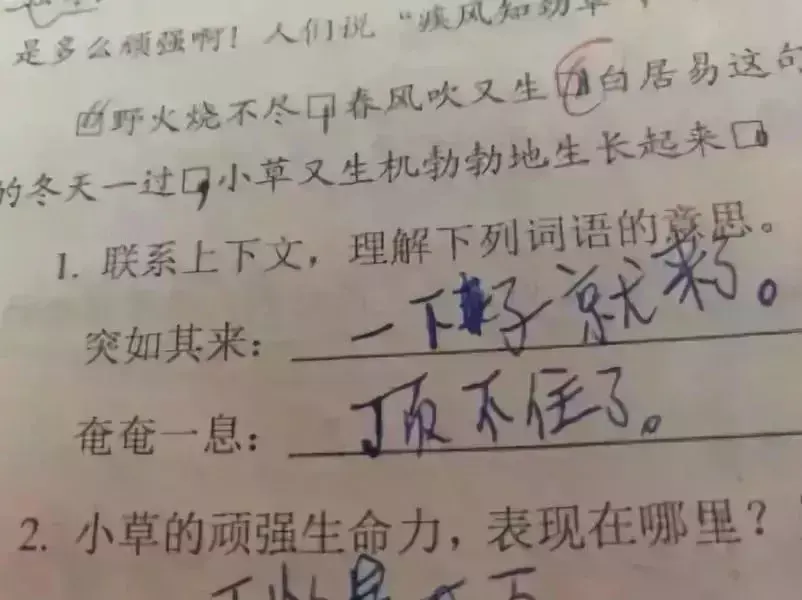 是多么顽强啊！人们说“疾风知劲草”，
野火烧不尽，春风吹又生 白居易这句
的冬天一过，小草又生机勃勃地生长起来
1. 联系上下文，理解下列词语的意思。
突如其来：一下子就来了。
奄奄一息：顶不住了。
2. 小草的顽强生命力，表现在哪里？